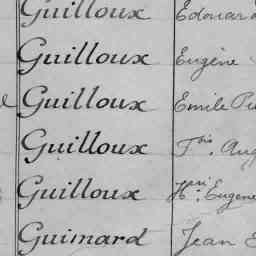 Guilloux Edouar
Guilloux Eugène
Guilloux Emile
Guilloux Fois. Aug
Guilloux Hri. Eugene
Guimard Jean